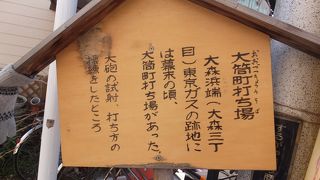 おおづつちょううちば
大筒町打ち場
大森浜端(大森三丁
目)東京ガスの跡地に
は幕末の頃、
大筒町打ち場があった。
大砲の試射、打ち方の
稽古をしたところ